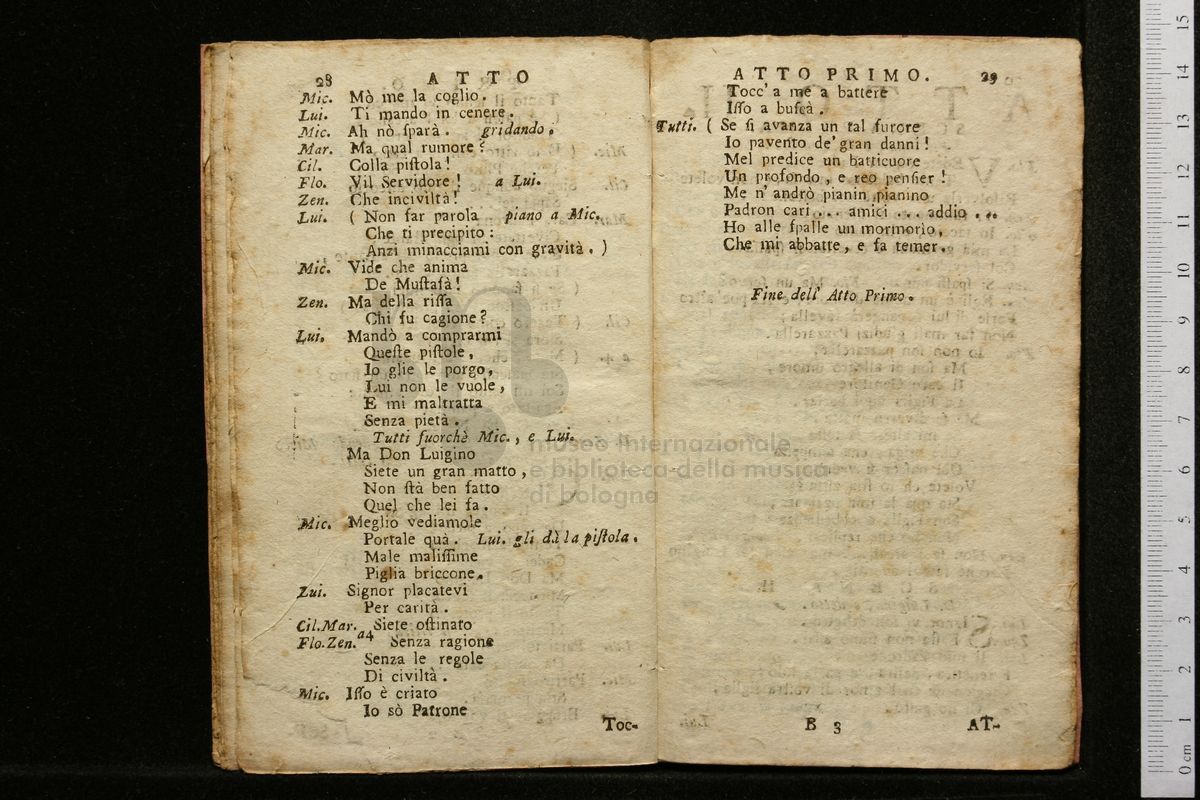 28 ATTO
Mic. Mò me la coglio.
Lui. Ti mando in cenere.
Mic. Ah nò ſparà. gridando.
Mar. Ma qual rumore?
Cil. Colla piſtola!
Flo. Vil Servidore! a Lui.
Zen. Che inciviltà!
Lui. ( Non far parola piano a Mic.
Che ti precipito:
Anzi minacciami con gravità. )
Mic. Vide che anima
De Muſtafà!
Zen. Ma della riſſa
Chi fu cagione?
Lui. Mandò a comprarmi
Queſte piſtole,
Io glie le porgo,
Lui non le vuole,
E mi maltratta
Senza pietà.
Tutti fuorchè Mic., e Lui.
Ma Don Luigino
Siete un gran matto,
Non ſtà ben fatto
Quel che lei fa.
Mic. Meglio vediamole
Portale quà. Lui. gli dà la piſtola.
Male maliſſime
Piglia briccone.
Lui. Signor placatevi
Per carità.
Cil.Mar. Siete oſtinato
Flo.Zen. a4 Senza ragione
Senza le regole
Di civiltà.
Mic. Iſſo è criato
Io sò Patrone
Toc-
ATTO PRIMO. 29
Tocc' a me a battere
Iſſo a buſcà.
Tutti. ( Se ſi avanza un tal furore
Io pavento de' gran danni!
Mel predice un batticuore
Un profondo, e reo penſier!
Me n' andrò pianin pianino
Padron cari ... amici ... addio ...
Ho alle ſpalle un mormorio,
Che mi abbatte, e fa temer.
Fine dell' Atto Primo.
B 3 AT-
museo internazionale
e biblioteca della musica
di bologna
0 cm 1 2 3 4 5 6 7 8 9 10 11 12 13 14 15